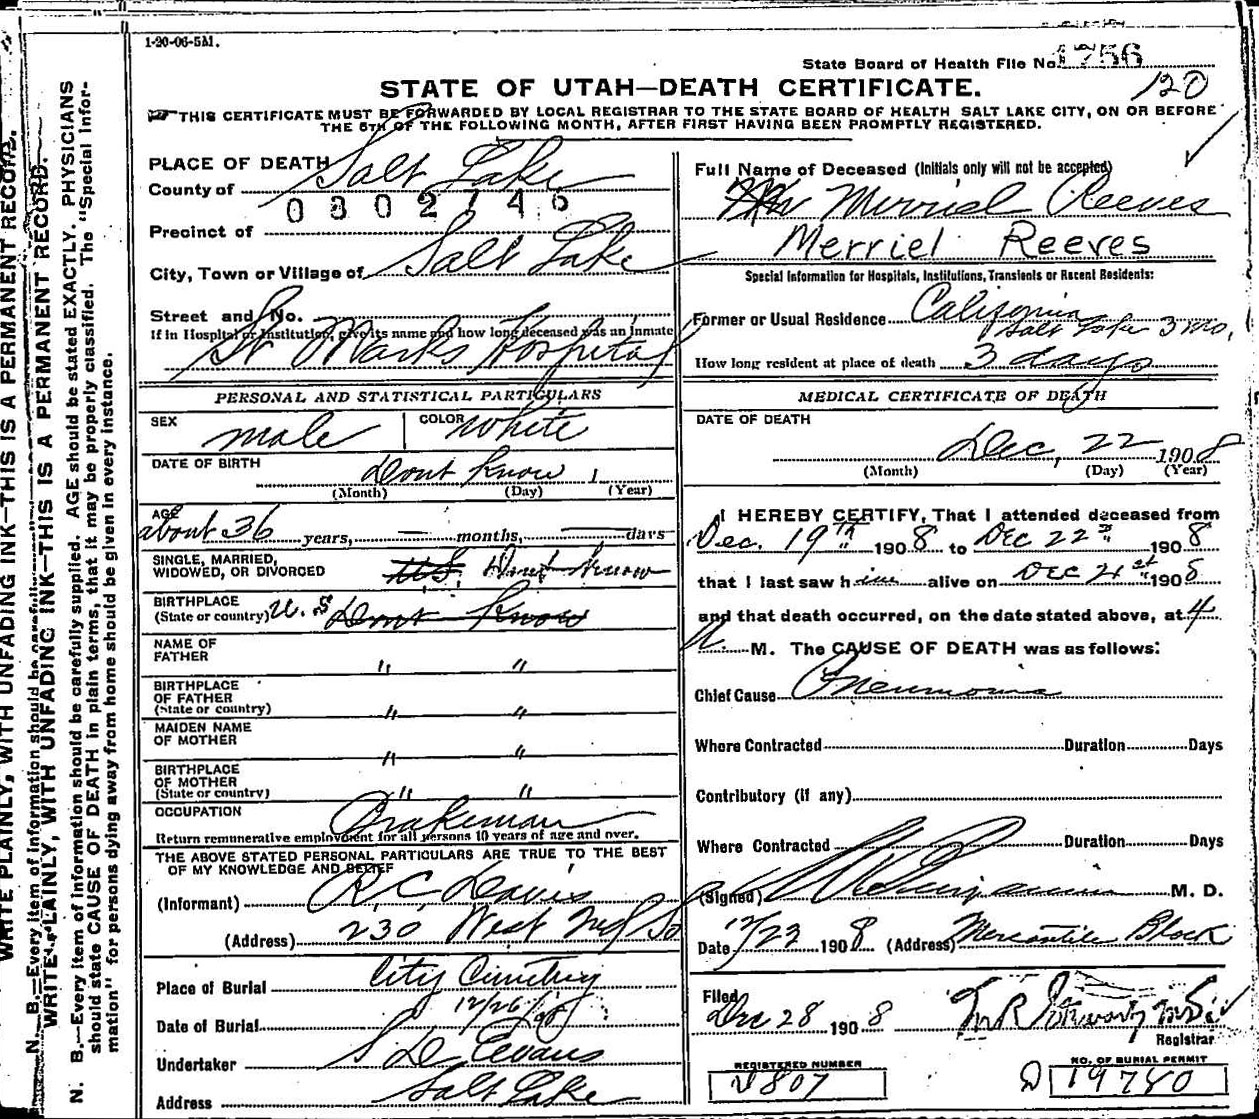 1-20-06-5M.
State Board of Health File No. 1756
120
STATE OF UTAH—DEATH CERTIFICATE.
THIS CERTIFICATE MUST BE FORWARDED BY LOCAL REGISTRAR TO THE STATE BOARD OF HEALTH SALT LAKE CITY, ON OR BEFORE
THE 5TH OF THE FOLLOWING MONTH, AFTER FIRST HAVING BEEN PROMPTLY REGISTERED.
PLACE OF DEATH
County of Salt Lake
0302746
Precinct of
City, Town or Village of Salt Lake
Street and No.
If in Hospital or Institution, give its name and how long deceased was an inmate
St Marks Hospital
PERSONAL AND STATISTICAL PARTICULARS
SEX male COLOR white
DATE OF BIRTH Dont Know
(Month) (Day) (Year)
AGE
about 36 years, — months, — days
SINGLE, MARRIED,
WIDOWED, OR DIVORCED U.S. Dont Know
BIRTHPLACE
(State or country) U.S Dont Know
NAME OF
FATHER " "
BIRTHPLACE
OF FATHER
(State or country) " "
MAIDEN NAME
OF MOTHER " "
BIRTHPLACE
OF MOTHER
(State or country) " "
OCCUPATION Brakeman
Return remunerative employment for all persons 10 years of age and over.
THE ABOVE STATED PERSONAL PARTICULARS ARE TRUE TO THE BEST
OF MY KNOWLEDGE AND BELIEF
(Informant) R. C. Davis
(Address) 230 West 2nd So
Place of Burial City Cemetery
Date of Burial 12/26/08
Undertaker S D Evans
Address Salt Lake
Full Name of Deceased (Initials only will not be accepted)
Merriel Reeves
Merriel Reeves
Special Information for Hospitals, Institutions, Transients or Recent Residents:
Former or Usual Residence California
Salt Lake 3 mo.
How long resident at place of death 3 days
MEDICAL CERTIFICATE OF DEATH
DATE OF DEATH
Dec, 22 1908
(Month) (Day) (Year)
I HEREBY CERTIFY, That I attended deceased from
Dec. 19th 1908 to Dec 22d 1908
that I last saw him alive on Dec 21st 1908
and that death occurred, on the date stated above, at 4
A. M. The CAUSE OF DEATH was as follows:
Chief Cause Pneumonia
Where Contracted Duration Days
Contributory (if any)
Where Contracted Duration Days
(Signed) M. D.
Date 12/22 1908 (Address) Mercantile Block
Filed
Dec 28 1908
Registrar
REGISTERED NUMBER
807
NO. OF BURIAL PERMIT
D 19740
WRITE PLAINLY, WITH UNFADING INK—THIS IS A PERMANENT RECORD.
N. B.—Every item of information should be carefully
WRITE PLAINLY, WITH UNFADING INK—THIS IS A PERMANENT RECORD.
N. B.—Every item of information should be carefully supplied. AGE should be stated EXACTLY. PHYSICIANS
should state CAUSE OF DEATH in plain terms, that it may be properly classified. The "Special Infor-
mation" for persons dying away from home should be given in every instance.